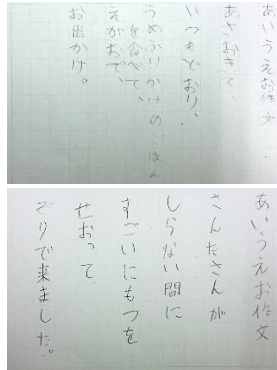 あいうえお作文
あさおきて、
いつもどおり、
うめふりかけのごはん
を食べて、
えがおで、
お出かけ。
あいうえお作文
さんたさんが
しらない間に
すごいにもつを
せおって
そりで来ました。